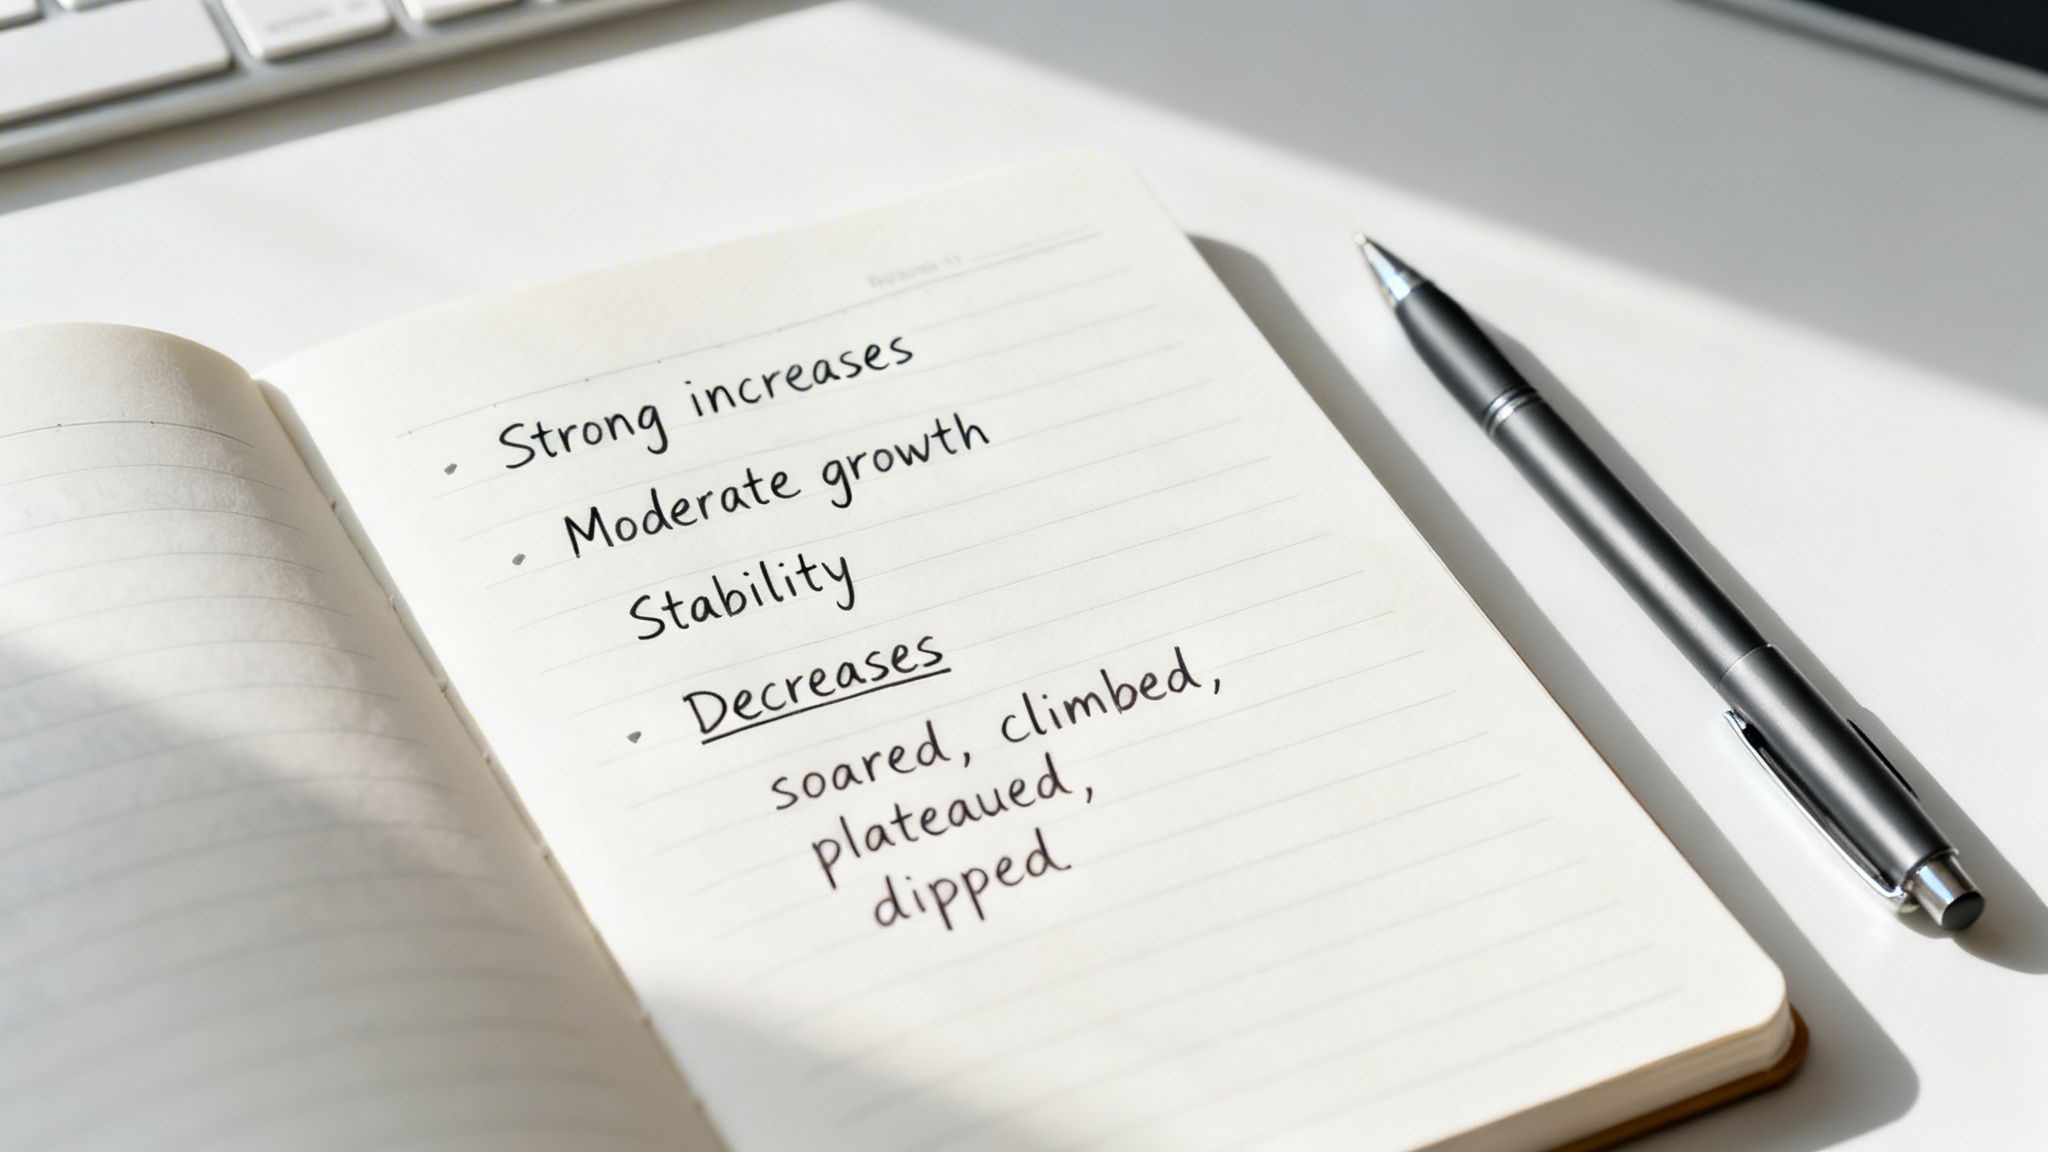 • Strong increases
• Moderate growth
Stability
• Decreases
soared, climbed,
plateaued,
dipped.